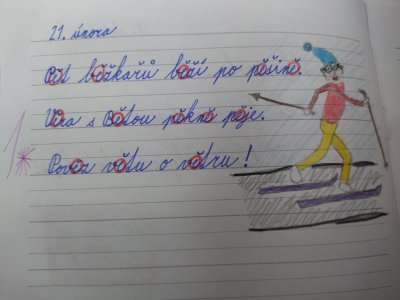 21. února
Pět běžkařů běží po pěšině.
Věra s Bětou pěkně pěje.
Pověz větu o větru!
1*